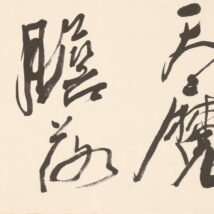 天魔
膽落